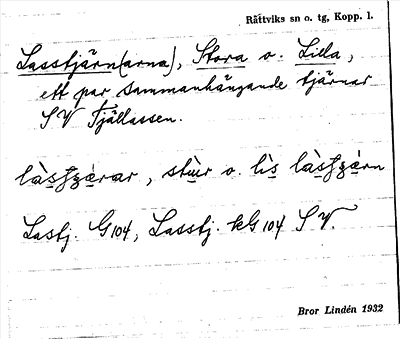 Rättviks sn o. tg, Kopp. l.
Lasstjärn(arna), Stora o. Lilla,
ett par sammanhängande tjärnar
SV Fjällassen.
stùr o. lìs
Lastj. G104, Lasstj. kG104 SV.
Bror Lindén 1932